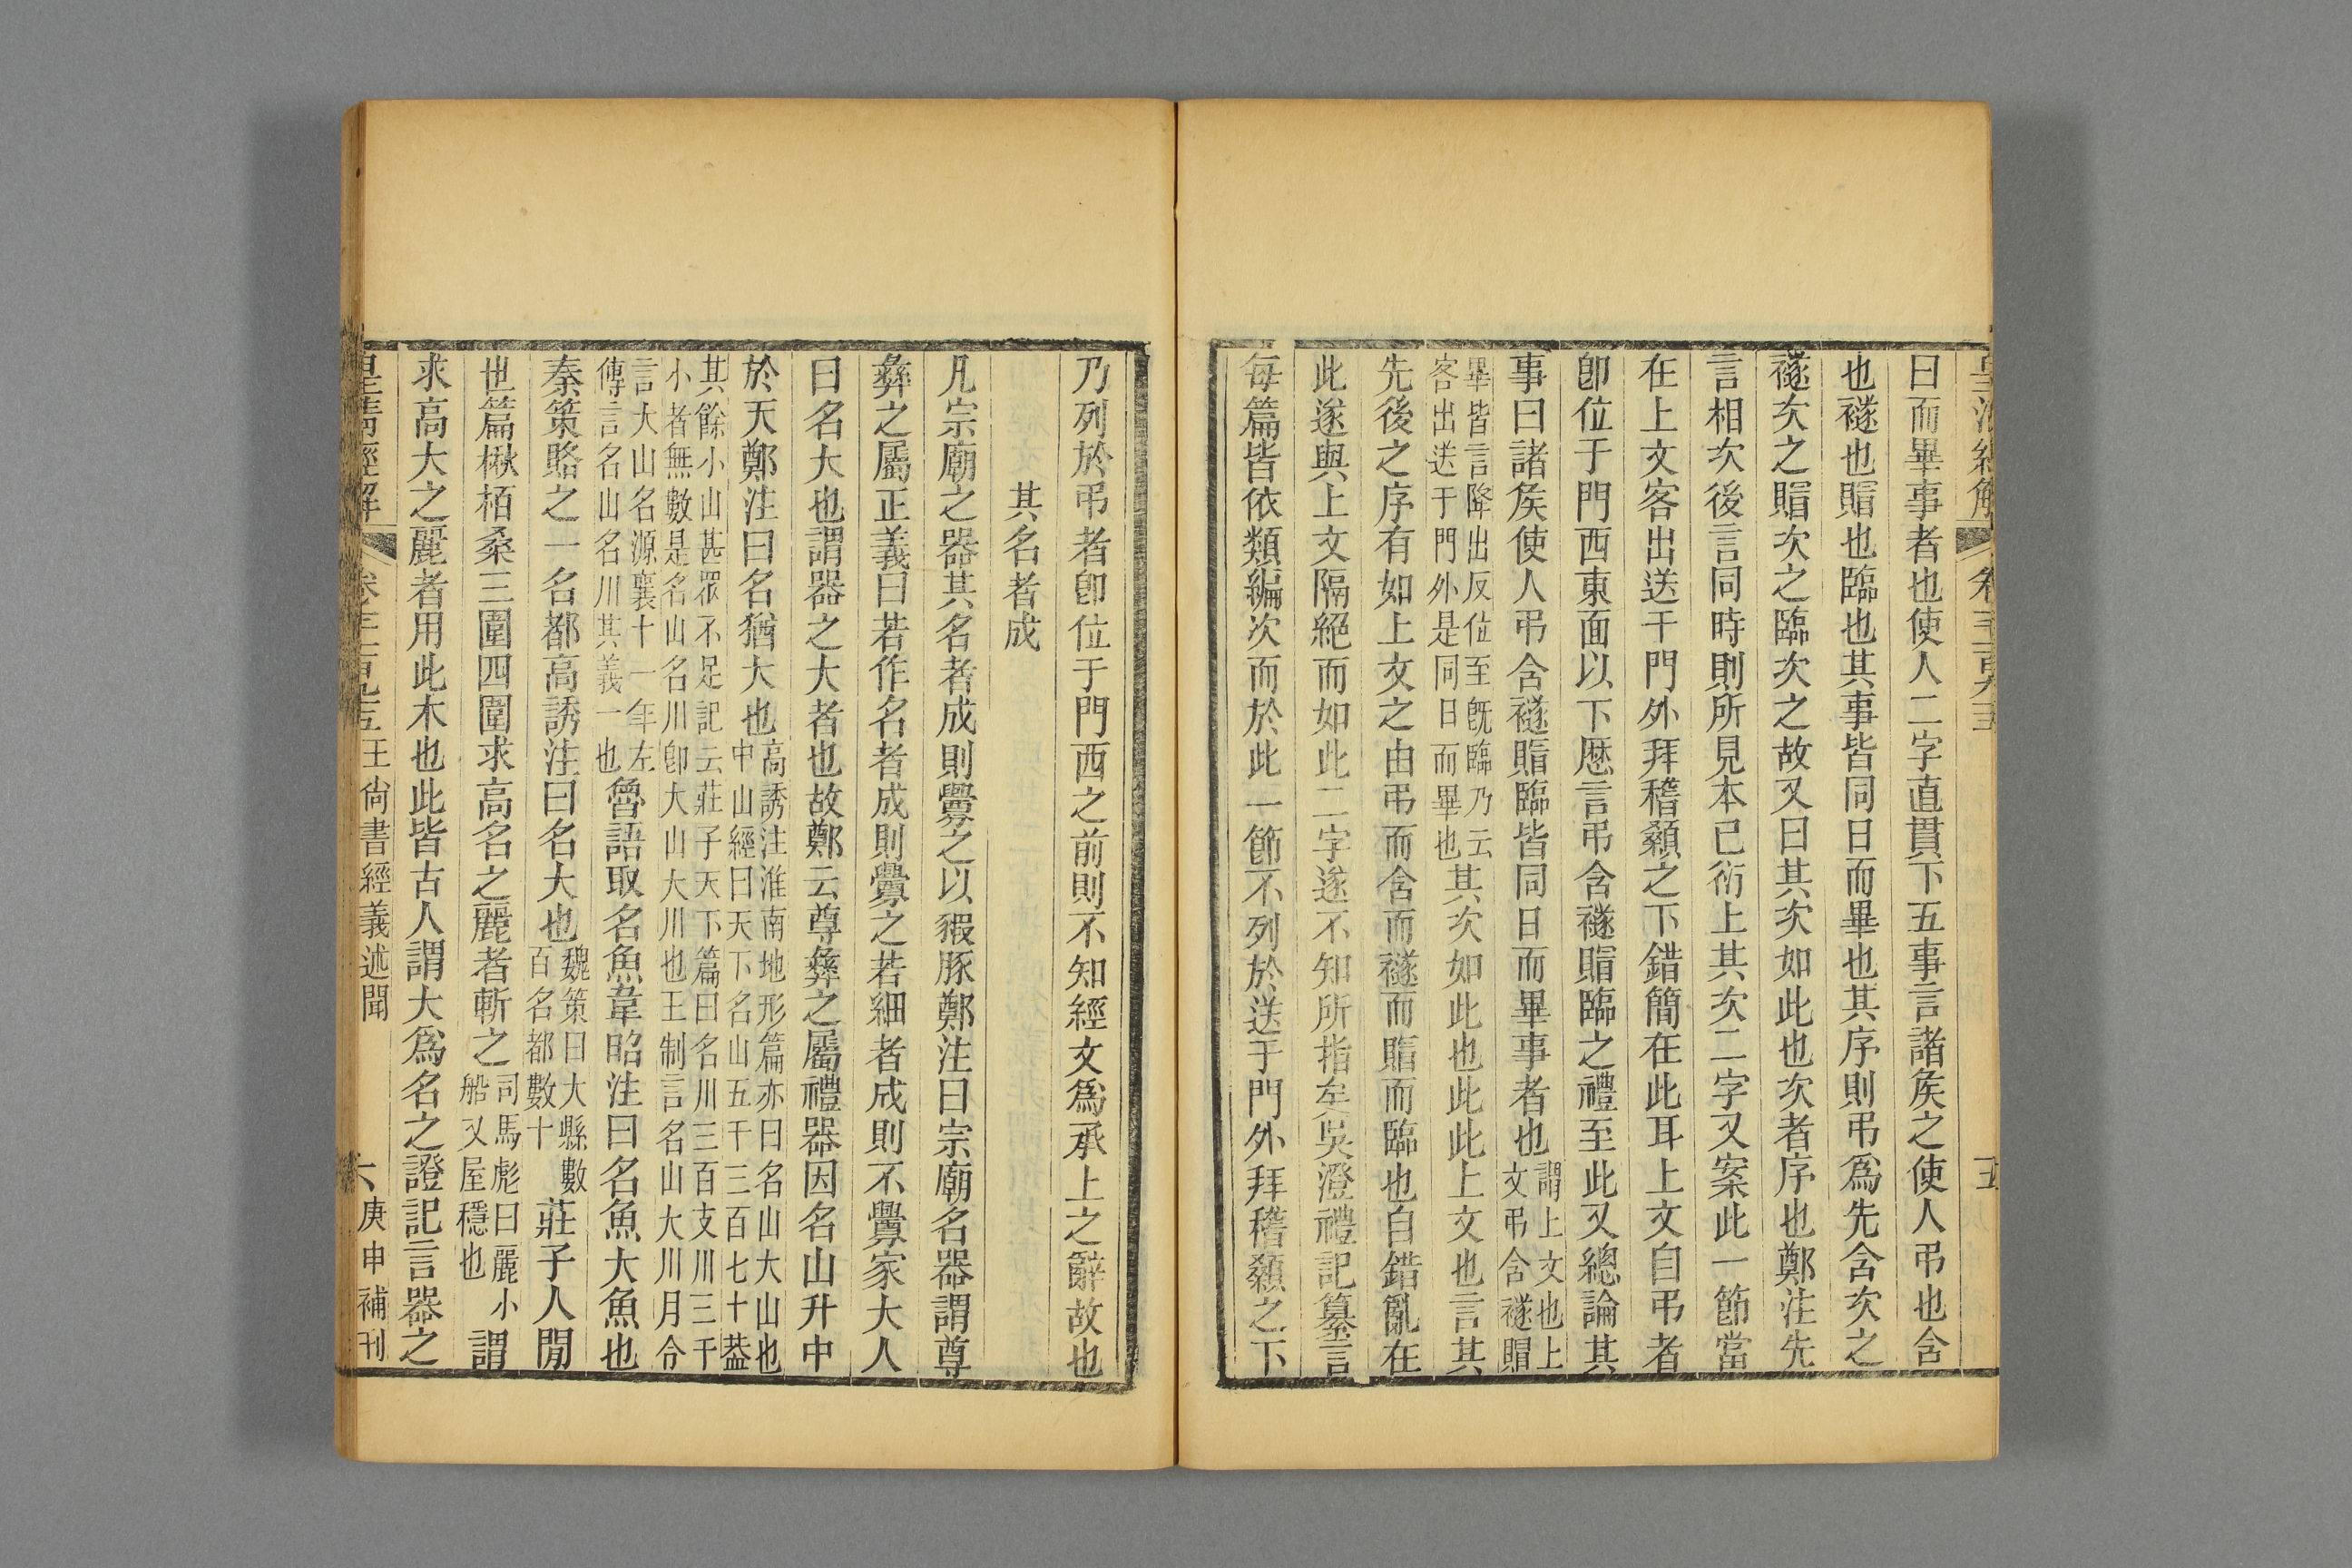 曰而畢事者也使人二字直貫下五事言諸矦之使人弔也含
也襚也賵也臨也其事皆同日而畢也其序則弔爲先含次之
襚次之賵次之臨次之故又曰其次如此也次者序也鄭注先
言相次後言同時則所見本已衍上其次二字又案此一節當
在上文客出送于門外拜稽顙之下錯簡在此耳上文自弔者
卽位于門西東面以下歷言弔含襚賵臨之禮至此又總論其
事曰諸矦使人弔含襚賵臨皆同日而畢事者也謂上文也上文弔含襚賵
畢皆言降出反位至旣臨乃云客出送于門外是同日而畢也其次如此也此此上文也言其
先後之序有如上文之由弔而含而襚而賵而臨也自錯亂在
此遂與上文隔絕而如此二字遂不知所指矣吳澄禮記纂言
每篇皆依類編次而於此一節不列於送于門外拜稽顙之下
乃列於弔者卽位于門西之前則不知經文爲承上之辭故也
其名者成
凡宗廟之器其名者成則釁之以豭豚鄭注曰宗廟名器謂尊
彝之屬正義曰若作名者成則釁之若細者成則不釁家大人
曰名大也謂器之大者也故鄭云尊彝之屬禮器因名山升中
於天鄭注曰名猶大也高誘注淮南地形篇亦曰名山大山也中山經曰天下名山五千三百七十葢
其餘小山甚眾不足記云莊子天下篇曰名川三百支川三千小者無數是名山名川卽大山大川也王制言名山大川月令
言大山名源襄十一年左傳言名山名川其義一也魯語取名魚韋昭注曰名魚大魚也
秦策賂之一名都高誘注曰名大也魏策曰大縣數百名都數十莊子人閒
世篇楸栢桑三圍四圍求高名之麗者斬之司馬彪曰麗小船又屋穩也謂
求高大之麗者用此木也此皆古人謂大爲名之證記言器之
皇淸經解 王尙書經義述聞 六 庚申補刊